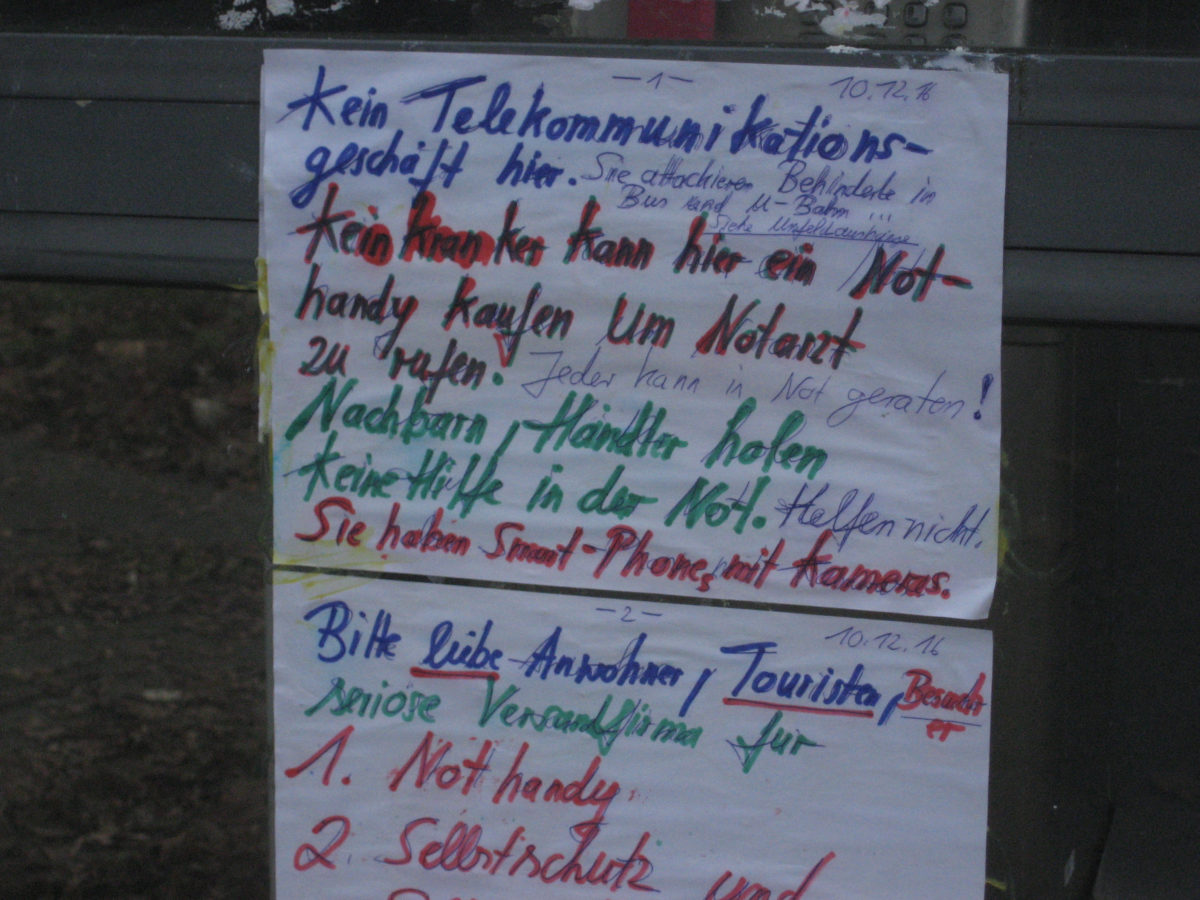 -1-
10.12.16
Kein Telekommunikations-
geschäft hier. Sie attackieren Behinderte in
Bus und U-Bahn ...
Siehe
Kein Kranker kann hier ein Not-
handy kaufen um Notarzt
zu rufen! Jeder kann in Not geraten!
Nachbarn, Händler holen
keine Hilfe in der Not. Helfen nicht.
Sie haben Smart-Phones mit Kameras.
-2-
10.12.16
Bitte liebe Anwohner, Touristen, Besuch
er
seriöse Versandfirma für
1. Nothandy
2. Selbstschutz und